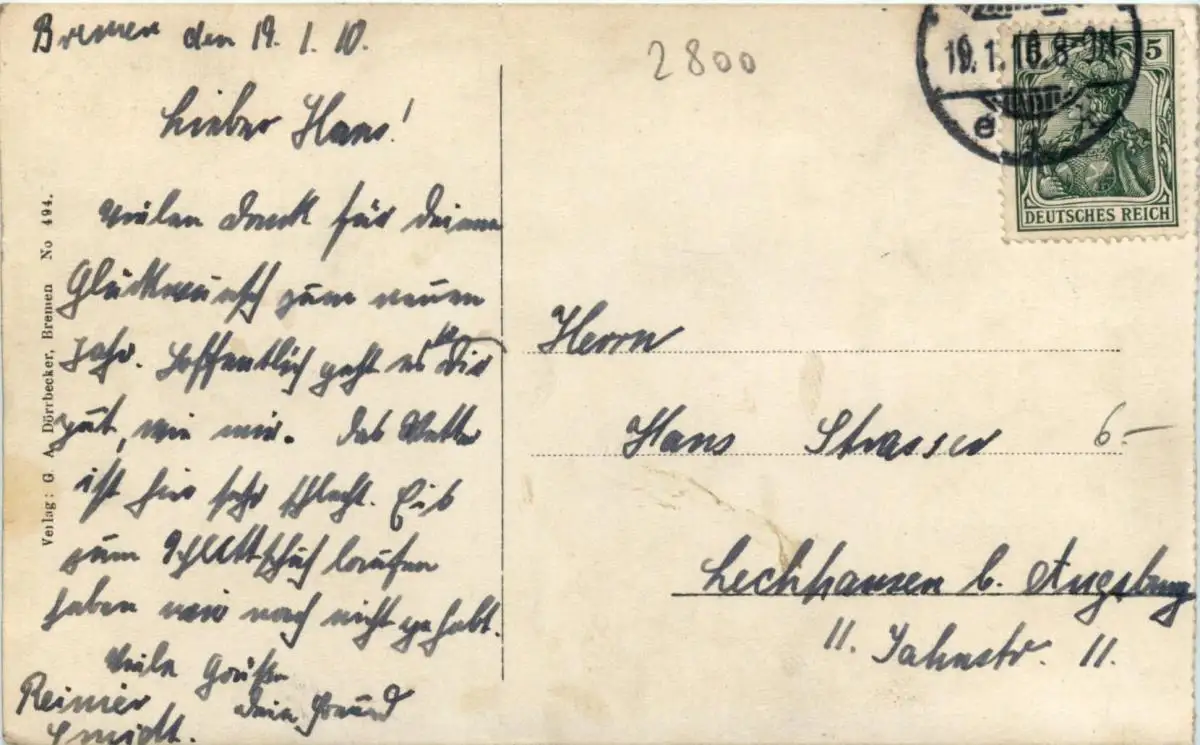 Bremen den 19. 1. 10.
Lieber Hans!
Vielen Dank für Deinen
Glückwunsch zum neuen
Jahr. Hoffentlich geht es Dir
so
gut, wie mir. Das Wetter
ist hier sehr schlecht. Eis
zum Schlittschuhlaufen
haben wir noch nicht gehabt.
Viele Grüße
Dein Freund
Reinier
Smidt.
Verlag: G. A. Dörrbecker, Bremen No 494.
2800
19.1.10.8-9N
5
DEUTSCHES REICH
Herrn
Hans Strasser
6.-
Lechhausen b. Augsburg
11. Jahnstr. 11.